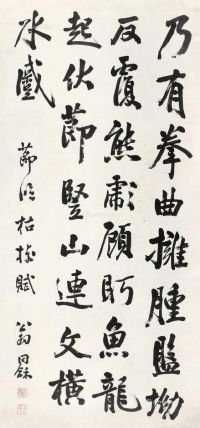 乃有拳曲擁腫盤坳
反覆熊彪顧盼魚龍
起伏節豎山連文橫
水蹙
節臨枯樹賦 翁同龢